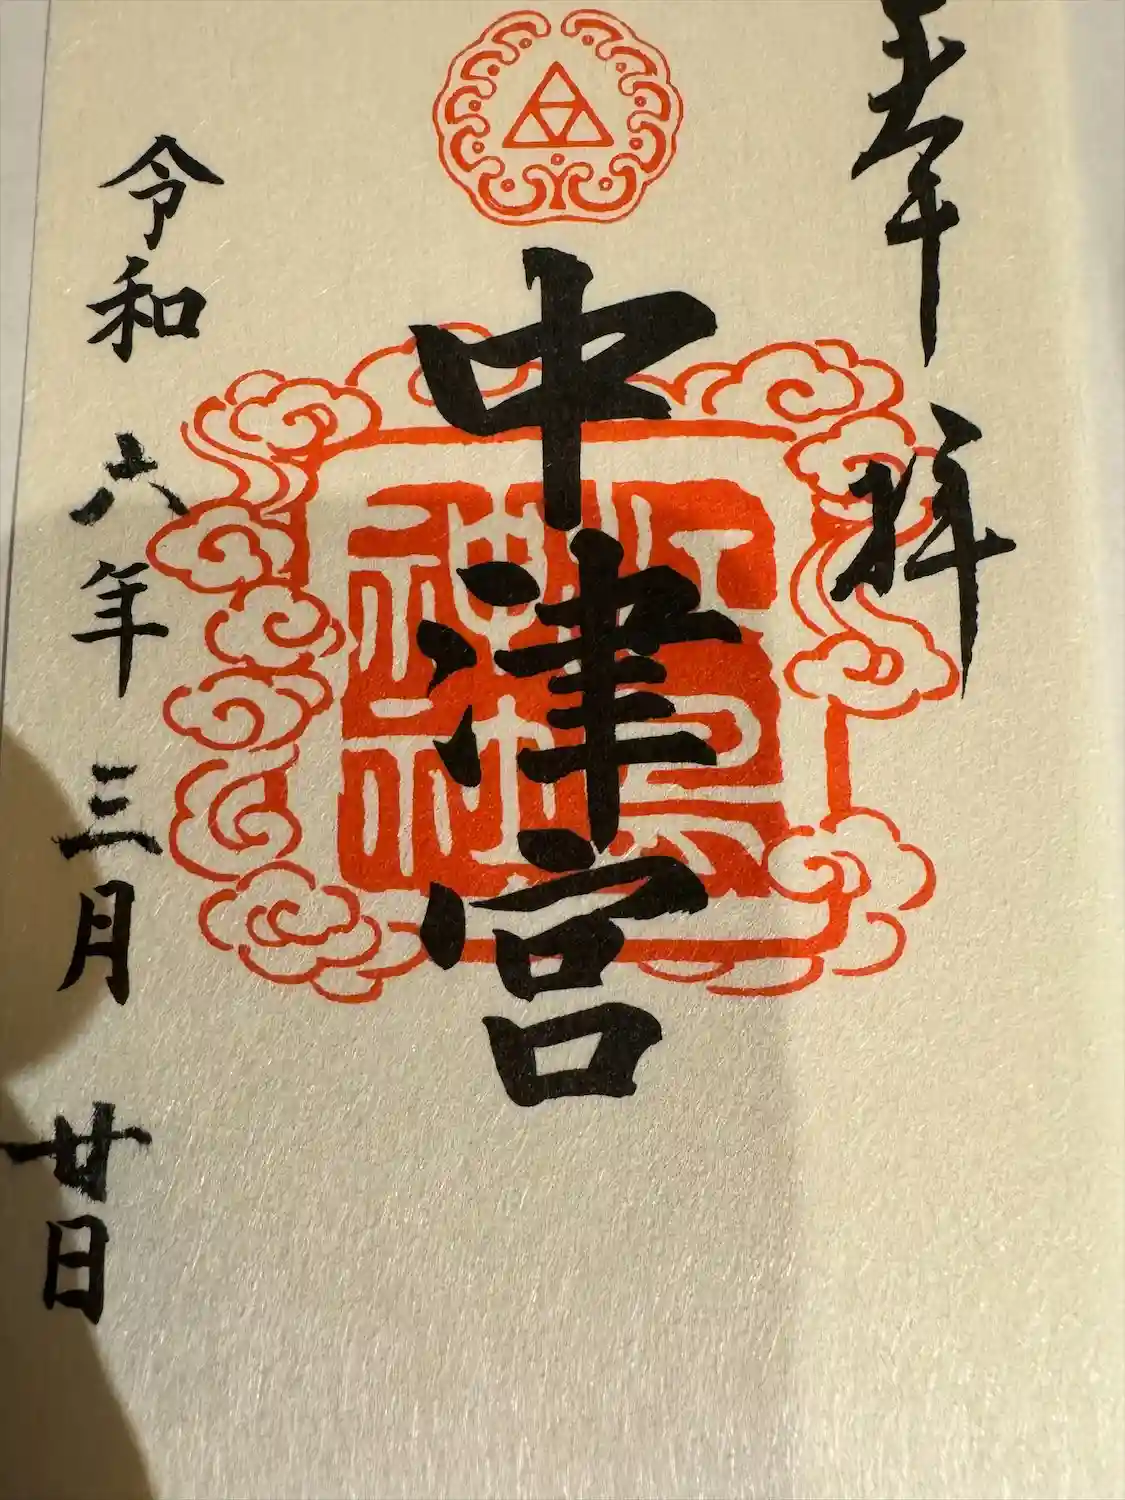 奉拝
中津宮
令和六年三月廿日